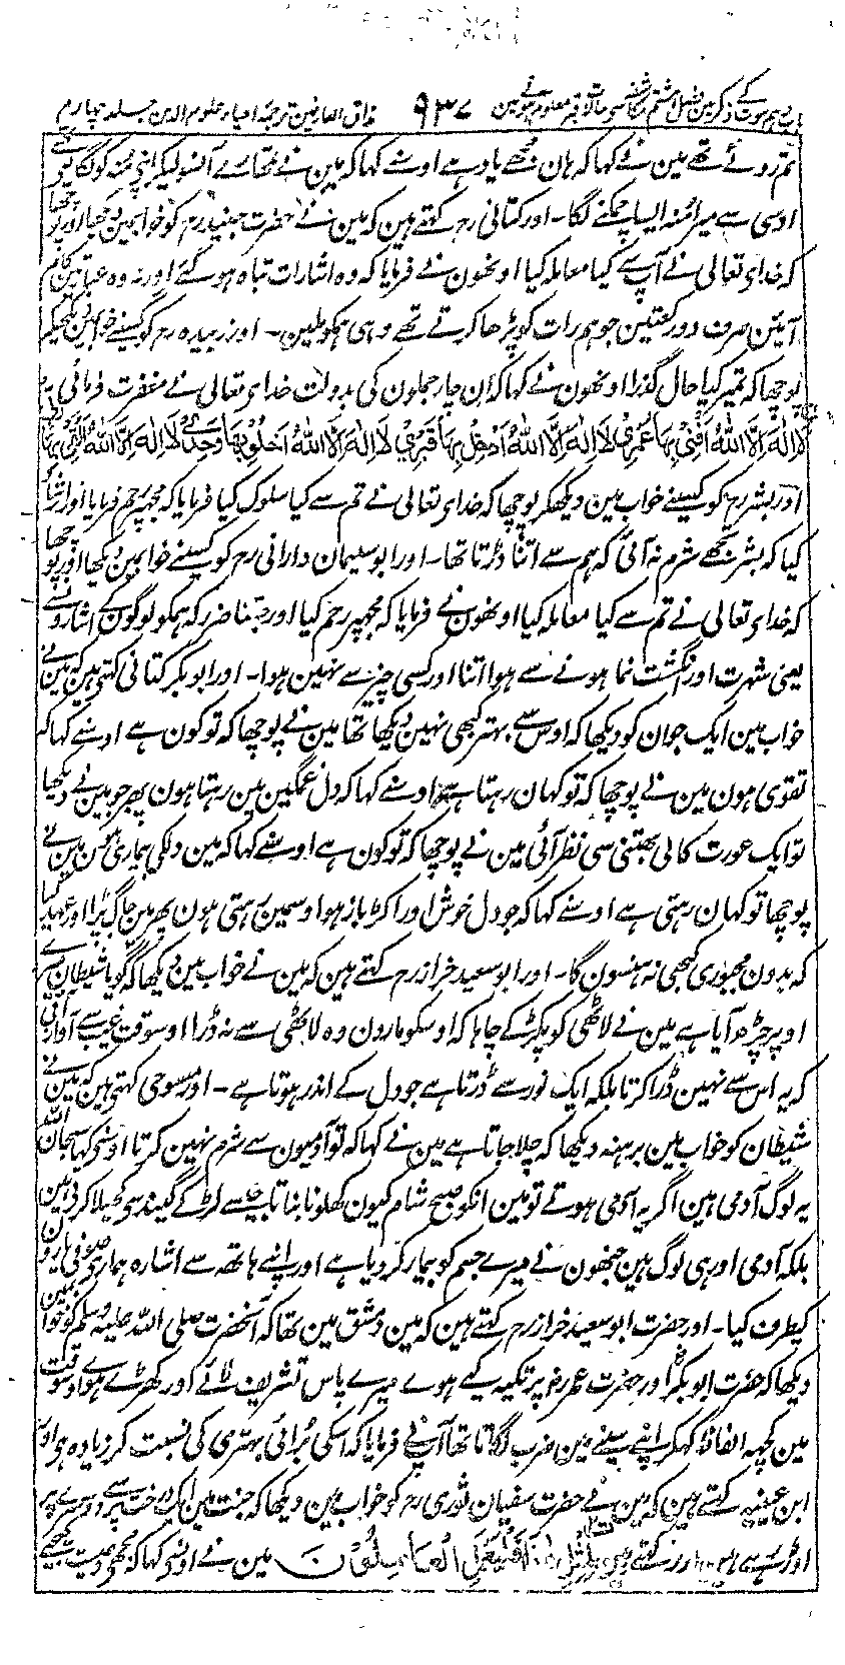 باب ہشتم موت کے ذکر میں فصل ہشتم مکاشفہ سے حالات قبر معلوم ہونے مین ۹۳۷ مذاق العارفین ترجمہ احیاء علوم الدین جلد چہارم
تم روئے تھے مین نے کہا کہ ہان مجھے یاد ہے اوسنے کہا کہ مین نے تمھارے آنسو لیکر اپنے منہ کو لگائے تھے
اوسی سے میرا منہ ایسا چمکنے لگا۔ اور کتانی رح کہتے ہین کہ مین نے حضرت جنید رح کو خواب مین دیکھا اور پوچھا
کہ خدای تعالی نے آپ سے کیا معاملہ کیا اونھون نے فرمایا کہ وہ اشارات تباہ ہو گئے اور نہ وہ عبادتین کام
آئین صرف دو رکعتین جو ہم رات کو پڑھا کرتے تھے وہی ہمکو ملین۔ اور زبیدہ رح کو کسینے خواب مین دیکھکر
پوچھا کہ تمپر کیا حال گذرا اونھون نے کہا کہ ان چار جملون کی بدولت خدای تعالی نے مغفرت فرمائی
لَا اِلٰہَ اِلَّا اللّٰہُ اُفْنِیْ بِہَا عُمُرِیْ لَا اِلٰہَ اِلَّا اللّٰہُ اَدْخُلُ بِہَا قَبْرِیْ لَا اِلٰہَ اِلَّا اللّٰہُ اَخْلُوْ بِہَا وَحْدِیْ لَا اِلٰہَ اِلَّا اللّٰہُ اَلْقٰی بِہَا رَبِّیْ
اور بشر رح کو کسینے خواب مین دیکھکر پوچھا کہ خدای تعالی نے تم سے کیا سلوک کیا فرمایا کہ مجھپر رحم فرمایا اور ارشاد
کیا کہ بشر تجھے شرم نہ آئی کہ ہم سے اتنا ڈرتا تھا۔ اور ابو سلیمان دارانی رح کو کسینے خواب مین دیکھا اور پوچھا
کہ خدای تعالی نے تم سے کیا معاملہ کیا اونھون نے فرمایا کہ مجھپر رحم کیا اور جتنا ضرر کہ ہمکو لوگون کے اشارون سے
یعنی شہرت اور انگشت نما ہونے سے ہوا اتنا اور کسی چیز سے نہین ہوا۔ اور ابوبکر کتانی کہتے ہین کہ مین نے
خواب مین ایک جوان کو دیکھا کہ اوس سے بہتر کبھی نہین دیکھا تھا مین نے پوچھا کہ تو کون ہے اوسنے کہا کہ
تقوی ہون مین نے پوچھا کہ تو کہان رہتا ہے اوسنے کہا کہ دل غمگین مین رہتا ہون پھر جو مین نے دیکھا
تو ایک عورت کالی بھتنی سی نظر آئی مین نے پوچھا کہ تو کون ہے اوسنے کہا کہ مین دلکی بیماری ہون مین نے
پوچھا تو کہان رہتی ہے اوسنے کہا کہ جو دل خوش اور اکڑ باز ہو اوسمین رہتی ہون پھر مین جاگ پڑا اور عہد کیا
کہ بدون مجبوری کبھی نہ ہنسون گا۔ اور ابو سعید خراز رح کہتے ہین کہ مین نے خواب مین دیکھا کہ گویا شیطان میرے
اوپر چڑھ آیا ہے مین نے لاٹھی کو پکڑ کے چاہا کہ اوسکو مارون وہ لاٹھی سے نہ ڈرا اوسوقت غیب سے آواز آئی
کہ یہ اس سے نہین ڈرا کرتا بلکہ ایک نور سے ڈرتا ہے جو دل کے اندر ہوتا ہے۔ اور مسوحی کہتے ہین کہ مین نے
شیطان کو خواب مین برہنہ دیکھا کہ چلا جاتا ہے مین نے کہا کہ تو آدمیون سے شرم نہین کرتا اوسنے کہا سبحان اللہ
یہ لوگ آدمی ہین اگر یہ آدمی ہوتے تو مین انکو صبح شام کیون کھلونا بناتا جیسے لڑکے گیند سے کھیلا کرتے ہین
بلکہ آدمی اور ہی لوگ ہین جنھون نے میرے جسم کو بیمار کر دیا ہے اور اپنے ہاتھ سے اشارہ ہمارے صوفی یارون
کیطرف کیا۔ اور حضرت ابو سعید خراز رح کہتے ہین کہ مین دمشق مین تھا کہ آنحضرت صلی اللہ علیہ وسلم کو خواب مین
دیکھا کہ حضرت ابوبکر اور حضرت عمر رض پر تکیہ کیے ہوے میرے پاس تشریف لائے اور کھڑے ہوے اوسوقت
مین کچھ الفاظ کہکر اپنے سینے مین ضرب لگاتا تھا آپ نے فرمایا کہ اسکی برائی بہتری کی نسبت کر زیادہ ہے اور
ابن عیینہ کہتے ہین کہ مین نے حضرت سفیان ثوری رح کو خواب مین دیکھا کہ جنت مین ایک درخت سے دوسرے پر
اوڑتے ہین اور کہتے ہین لِمِثْلِ ہٰذَا فَلْیَعْمَلِ الْعَامِلُوْنَ مین نے اونسے کہا کہ مجھے وصیت کیجیے